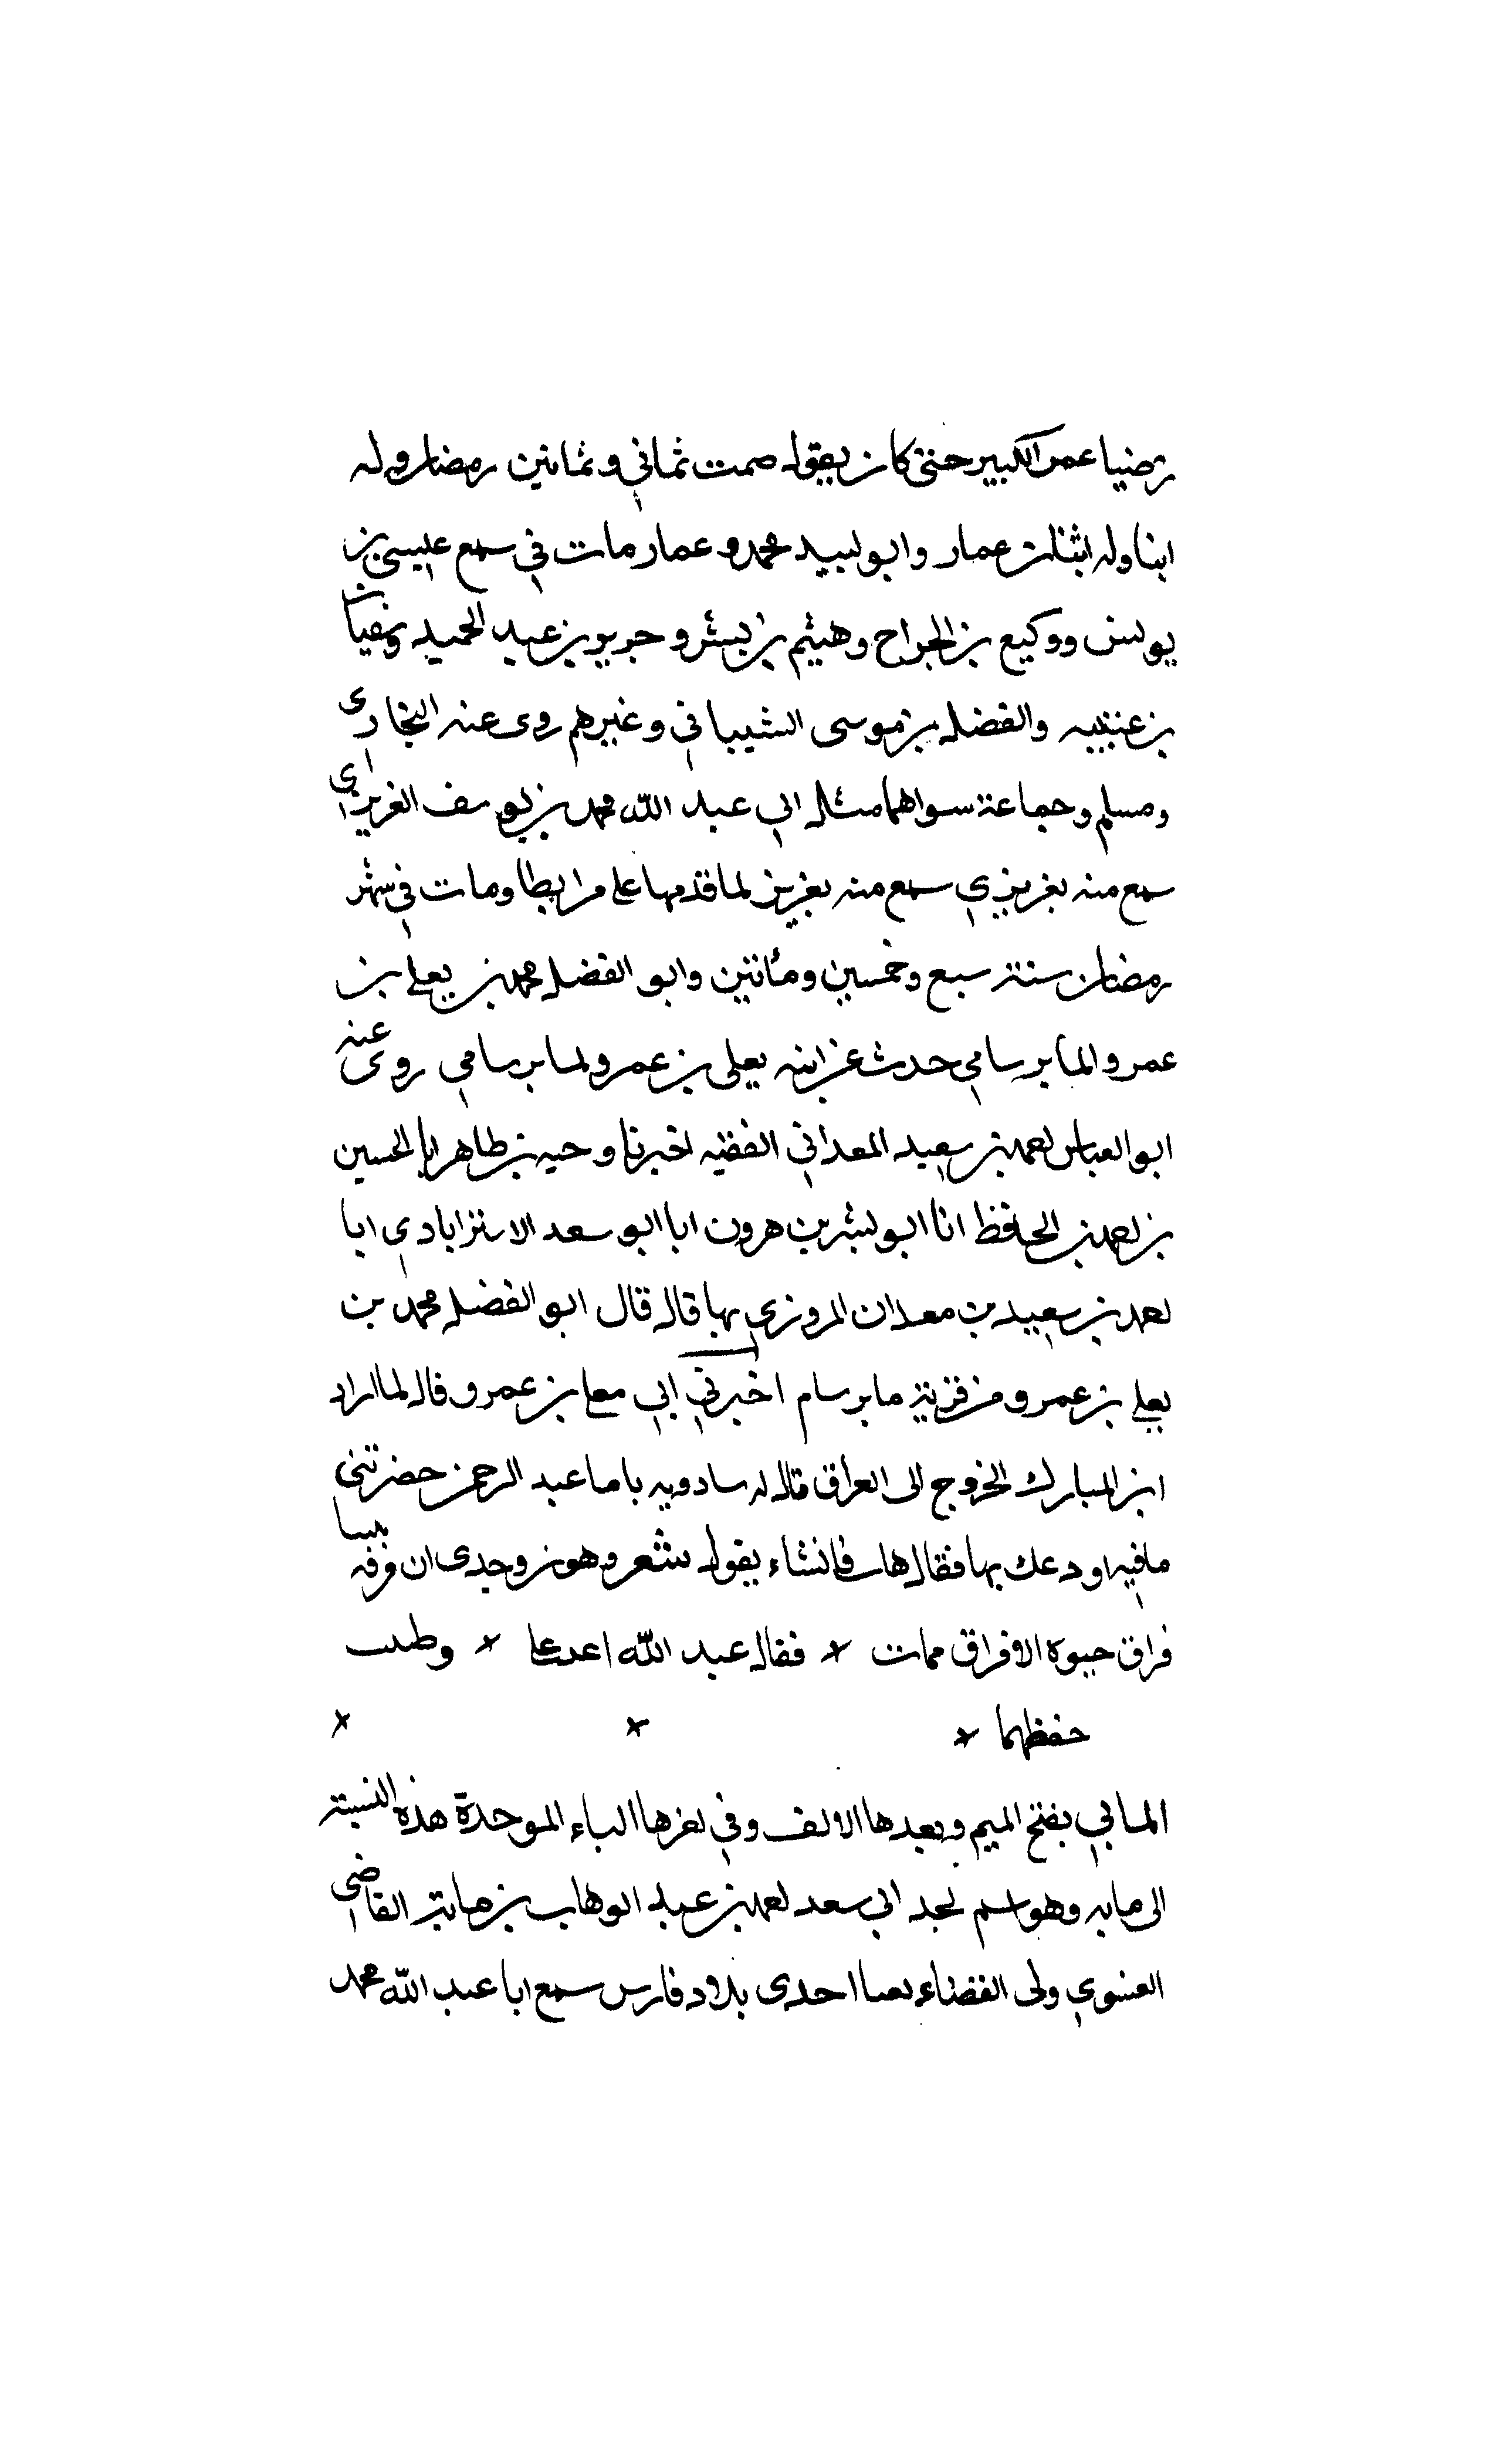 رضيا عمر الكبير حتى كان يقول صمت ثماني وثمانين رمضان وله
ابنا وله اثنان عمار وابو لبيد محمد وعمار مات في سمع عيسى بن
يونس ووكيع بن الجراح وهيثم بن بشر وجرير بن عبد الحميد وسفيان
بن عنيبه والفضل بن موسى الشيباني وغيرهم روى عنه البخاري
ومسلم وجماعة سواهما مثل ابي عبد الله محمد بن يوسف الفربري
سمع منه بفربري سمع منه بفربر لما قدمها على مرابطا ومات في شهر
رمضان سنة سبع وخمسين ومأتين وابو الفضل محمد بن يعلى بن
عمرو المابرسامي حدث عن ابيه يعلى بن عمرو لمابرسامي روى عنه
ابو العباس احمد بن سعيد المعداني الفقيه اخبرنا وجيه بن طاهر ابا الحسين
بن احمد الحافظ انا ابو بشر بن هرون ابا ابو سعد الاستراباذي ابا
احمد بن سعيد بن معدان المروزي بها قال قال ابو الفضل محمد بن
يعلى بن عمرو من قرية مابرسام اخبرني ابي معلى بن عمرو قال لما اراد
ابن المبارك الخروج الى العراق قال له سادويه باما عبد الرحمن حضرتني
مافيه اودعك بها فقال هات فانشاء يقول شعر وهون وجدى ان فرقه بيننا
فراق حيوة لا فراق ممات * فقال عبد الله اعد على * وطلب
حفظهما * * *
المابي بفتح الميم وبعدها الالف وفي اخرها الباء الموحدة هذه النسبة
الى مابه وهو اسم لجد ابي سعد احمد بن عبد الوهاب بن مابة القاضي
الفسوي ولى القضاء بفسا احدى بلاد فارس سمع ابا عبد الله محمد